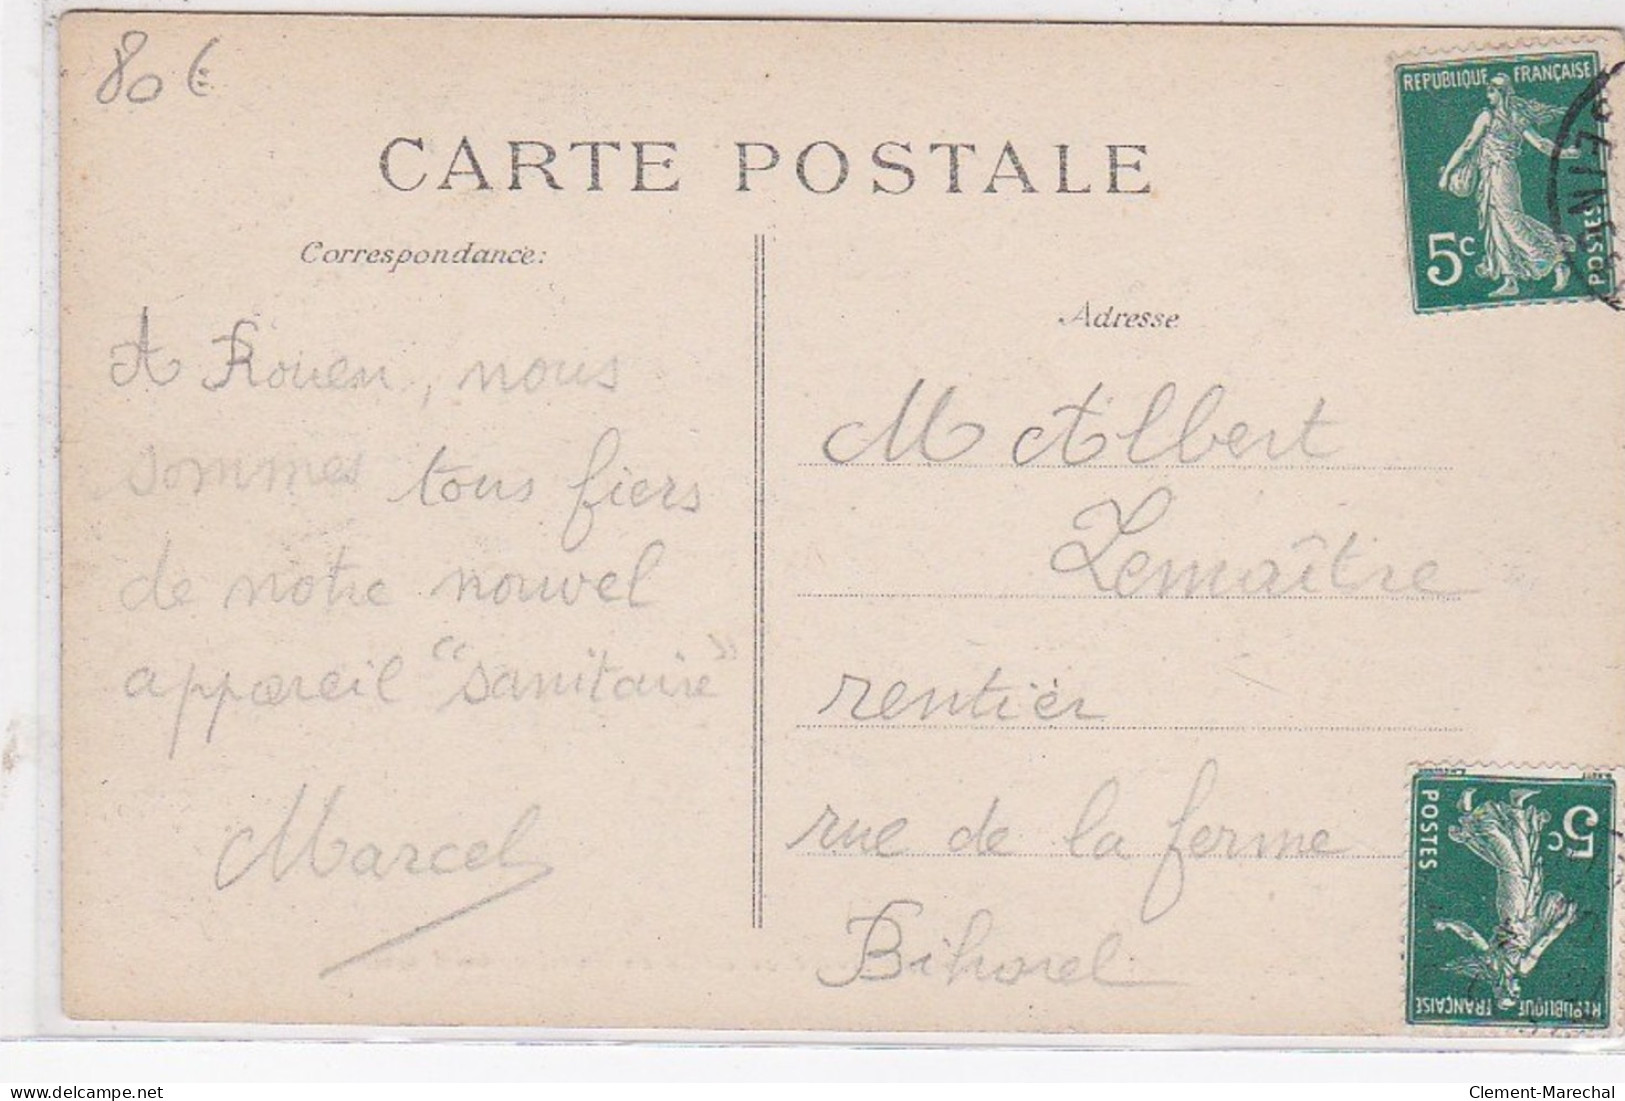 80 €
CARTE POSTALE
Correspondance:
Adresse
A Rouen, nous
sommes tous fiers
de notre nouvel
appareil "sanitaire"
Marcel
M Albert
Lemaître
rentier
rue de la ferme
Bihorel
REPUBLIQUE FRANÇAISE
5c
POSTES
SEINE
REPUBLIQUE FRANÇAISE
5c
POSTES
delcampe.net
Clement-Marechal